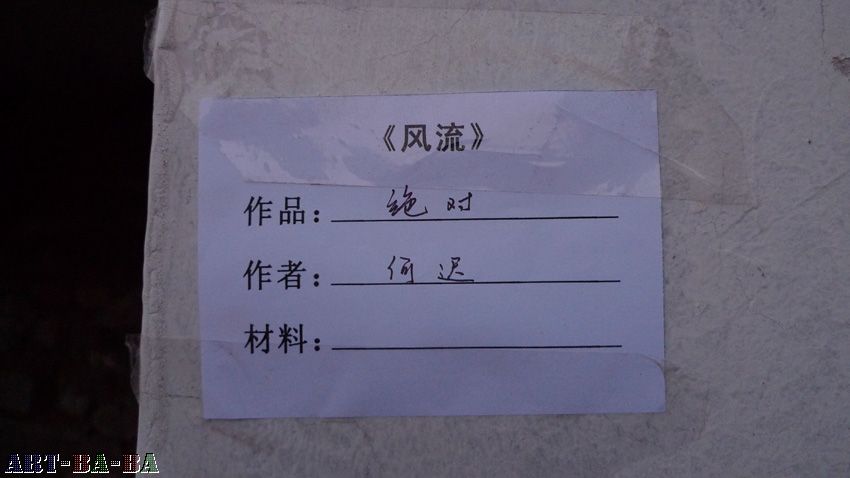 《风流》
作品：绝对
作者：何迟
材料：
ART-BA-BA